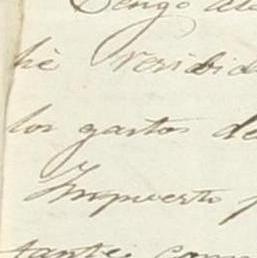 Tengo
hè recibid
los gastos de
Impuesto
tante com